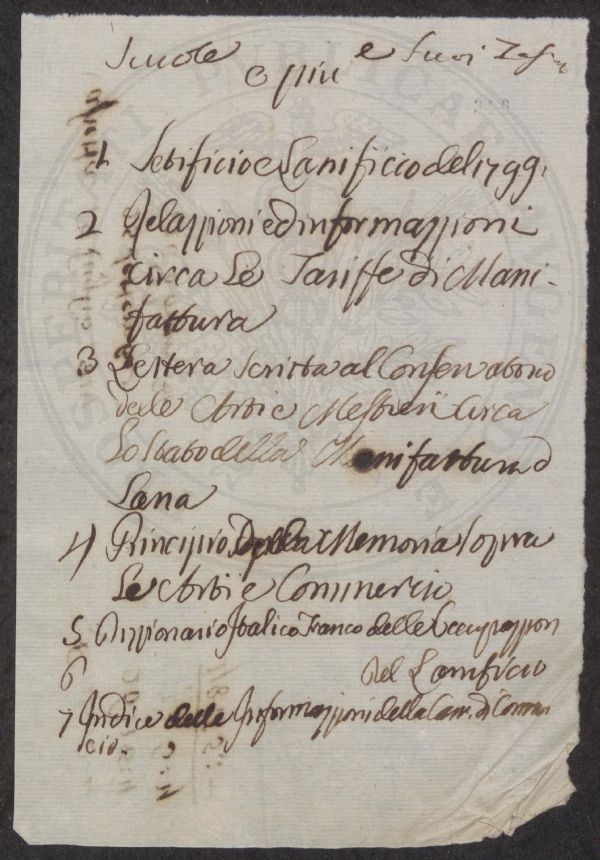 Scuole e Suoi
e più
1 Setificio e Lanificio del 1799.
2 Relazzioni ed informazzioni
circa Le Tariffe di Mani-
fattura
3 Lettera scritta al Conservatorio
delle Arti e Mestieri Circa
Lo stato della Manifattura d
Lana
4) Principio della Memoria sopra
Le Arti e Commercio
5 Dizzionario Italico Franco delle
6 del Lanificio
7 Indice delle Informazzioni della Cam. di Comer
cio.